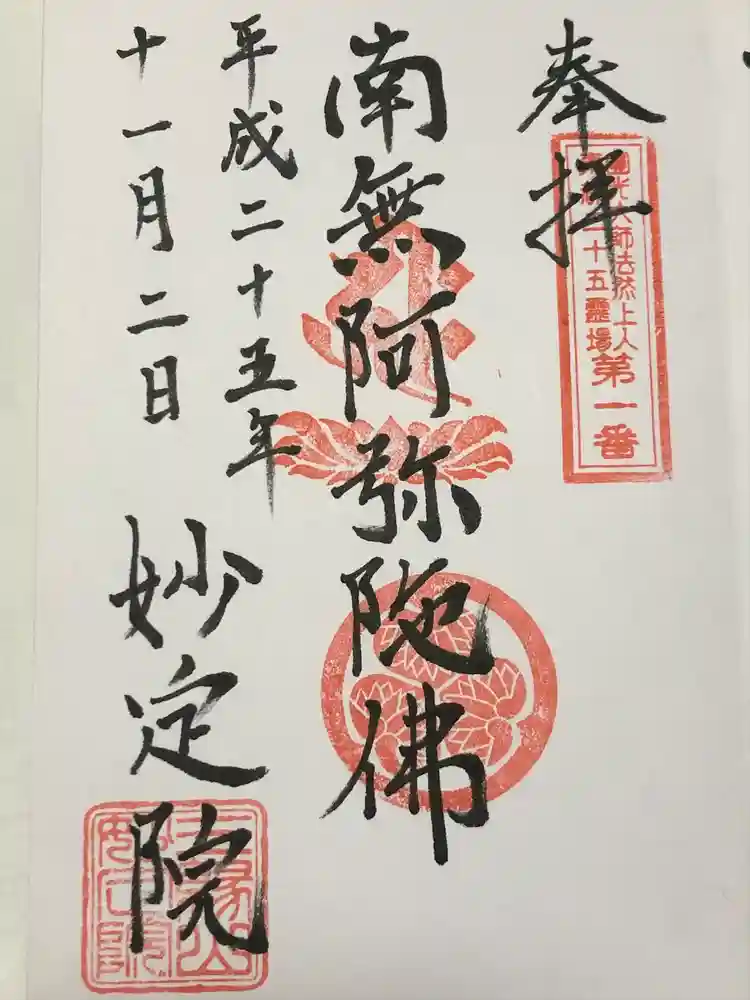 奉拝
光大師法然上人
二十五霊場
第一番
南無阿弥陀佛
平成二十五年
十一月二日
妙定院